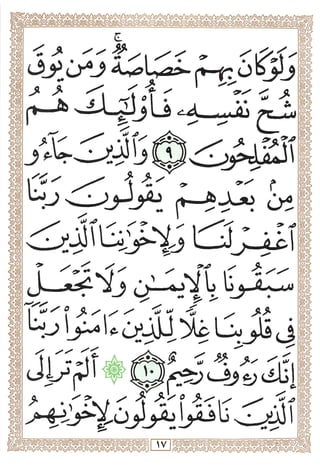 وَلَوْ كَانَ بِهِمْ خَصَاصَةٌ ۚ وَمَن يُوقَ
شُحَّ نَفْسِهِۦ فَأُو۟لَـٰٓئِكَ هُمُ
ٱلْمُفْلِحُونَ ٩ وَٱلَّذِينَ جَآءُو
مِنۢ بَعْدِهِمْ يَقُولُونَ رَبَّنَا
ٱغْفِرْ لَنَا وَلِإِخْوَٰنِنَا ٱلَّذِينَ
سَبَقُونَا بِٱلْإِيمَـٰنِ وَلَا تَجْعَلْ
فِى قُلُوبِنَا غِلًّا لِّلَّذِينَ ءَامَنُوا۟ رَبَّنَآ
إِنَّكَ رَءُوفٌ رَّحِيمٌ ١٠ ۞ أَلَمْ تَرَ إِلَى
ٱلَّذِينَ نَافَقُوا۟ يَقُولُونَ لِإِخْوَٰنِهِمُ
١٧